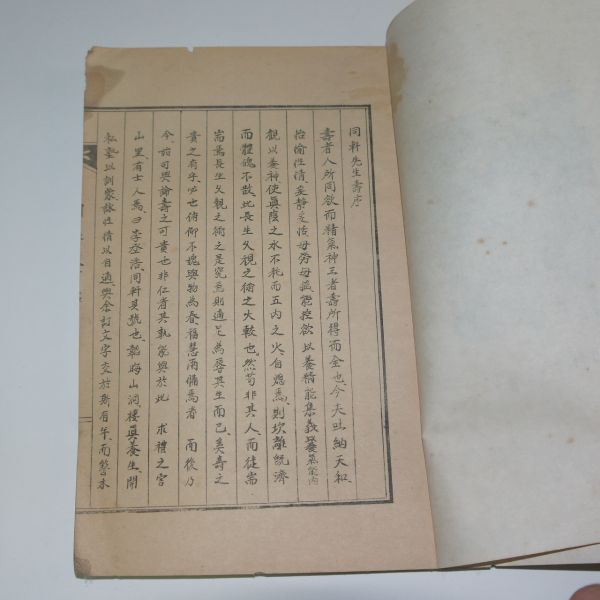 同軒先生壽序
壽者人所同欲而精氣神王者壽所得而全也今夫吐納天和
怡愉性情矣靜芝恬毋勞毋藏能控欲以養精能集義以養氣能內
觀以養神使眞陰之水不耗而五內之火自熄焉則坎離統濟
而體魄不敝此長生久視之術之大較也然苟非其人而徒耑
耑焉長生久視之術之是究焉則適足爲辱其生而已奚壽之
貴之有乎必也俯仰不愧與物爲春福慧雨備焉者而後乃
今始可與論壽之可貴也非仁者其孰能與於此求禮之宮
山里有士人焉曰李丞浩同軒其號也韜晦山洞棲眞養生開
私塾以訓蒙詠性情以自適與余訂文字交於斯有年而嘗未